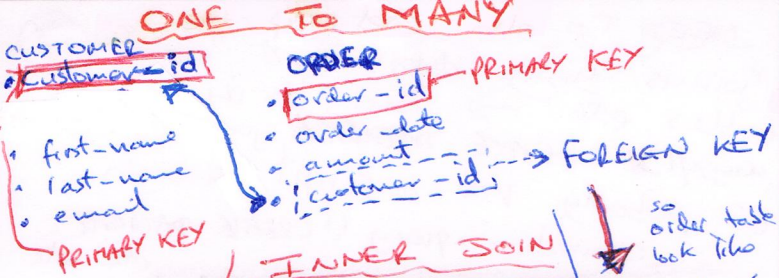 ONE TO MANY
CUSTOMER
• customer-id
• first-name
• last-name
• email
PRIMARY KEY
ORDER
• order-id
PRIMARY KEY
• order-date
• amount
• customer-id
FOREIGN KEY
so
order table
look like
INNER JOIN